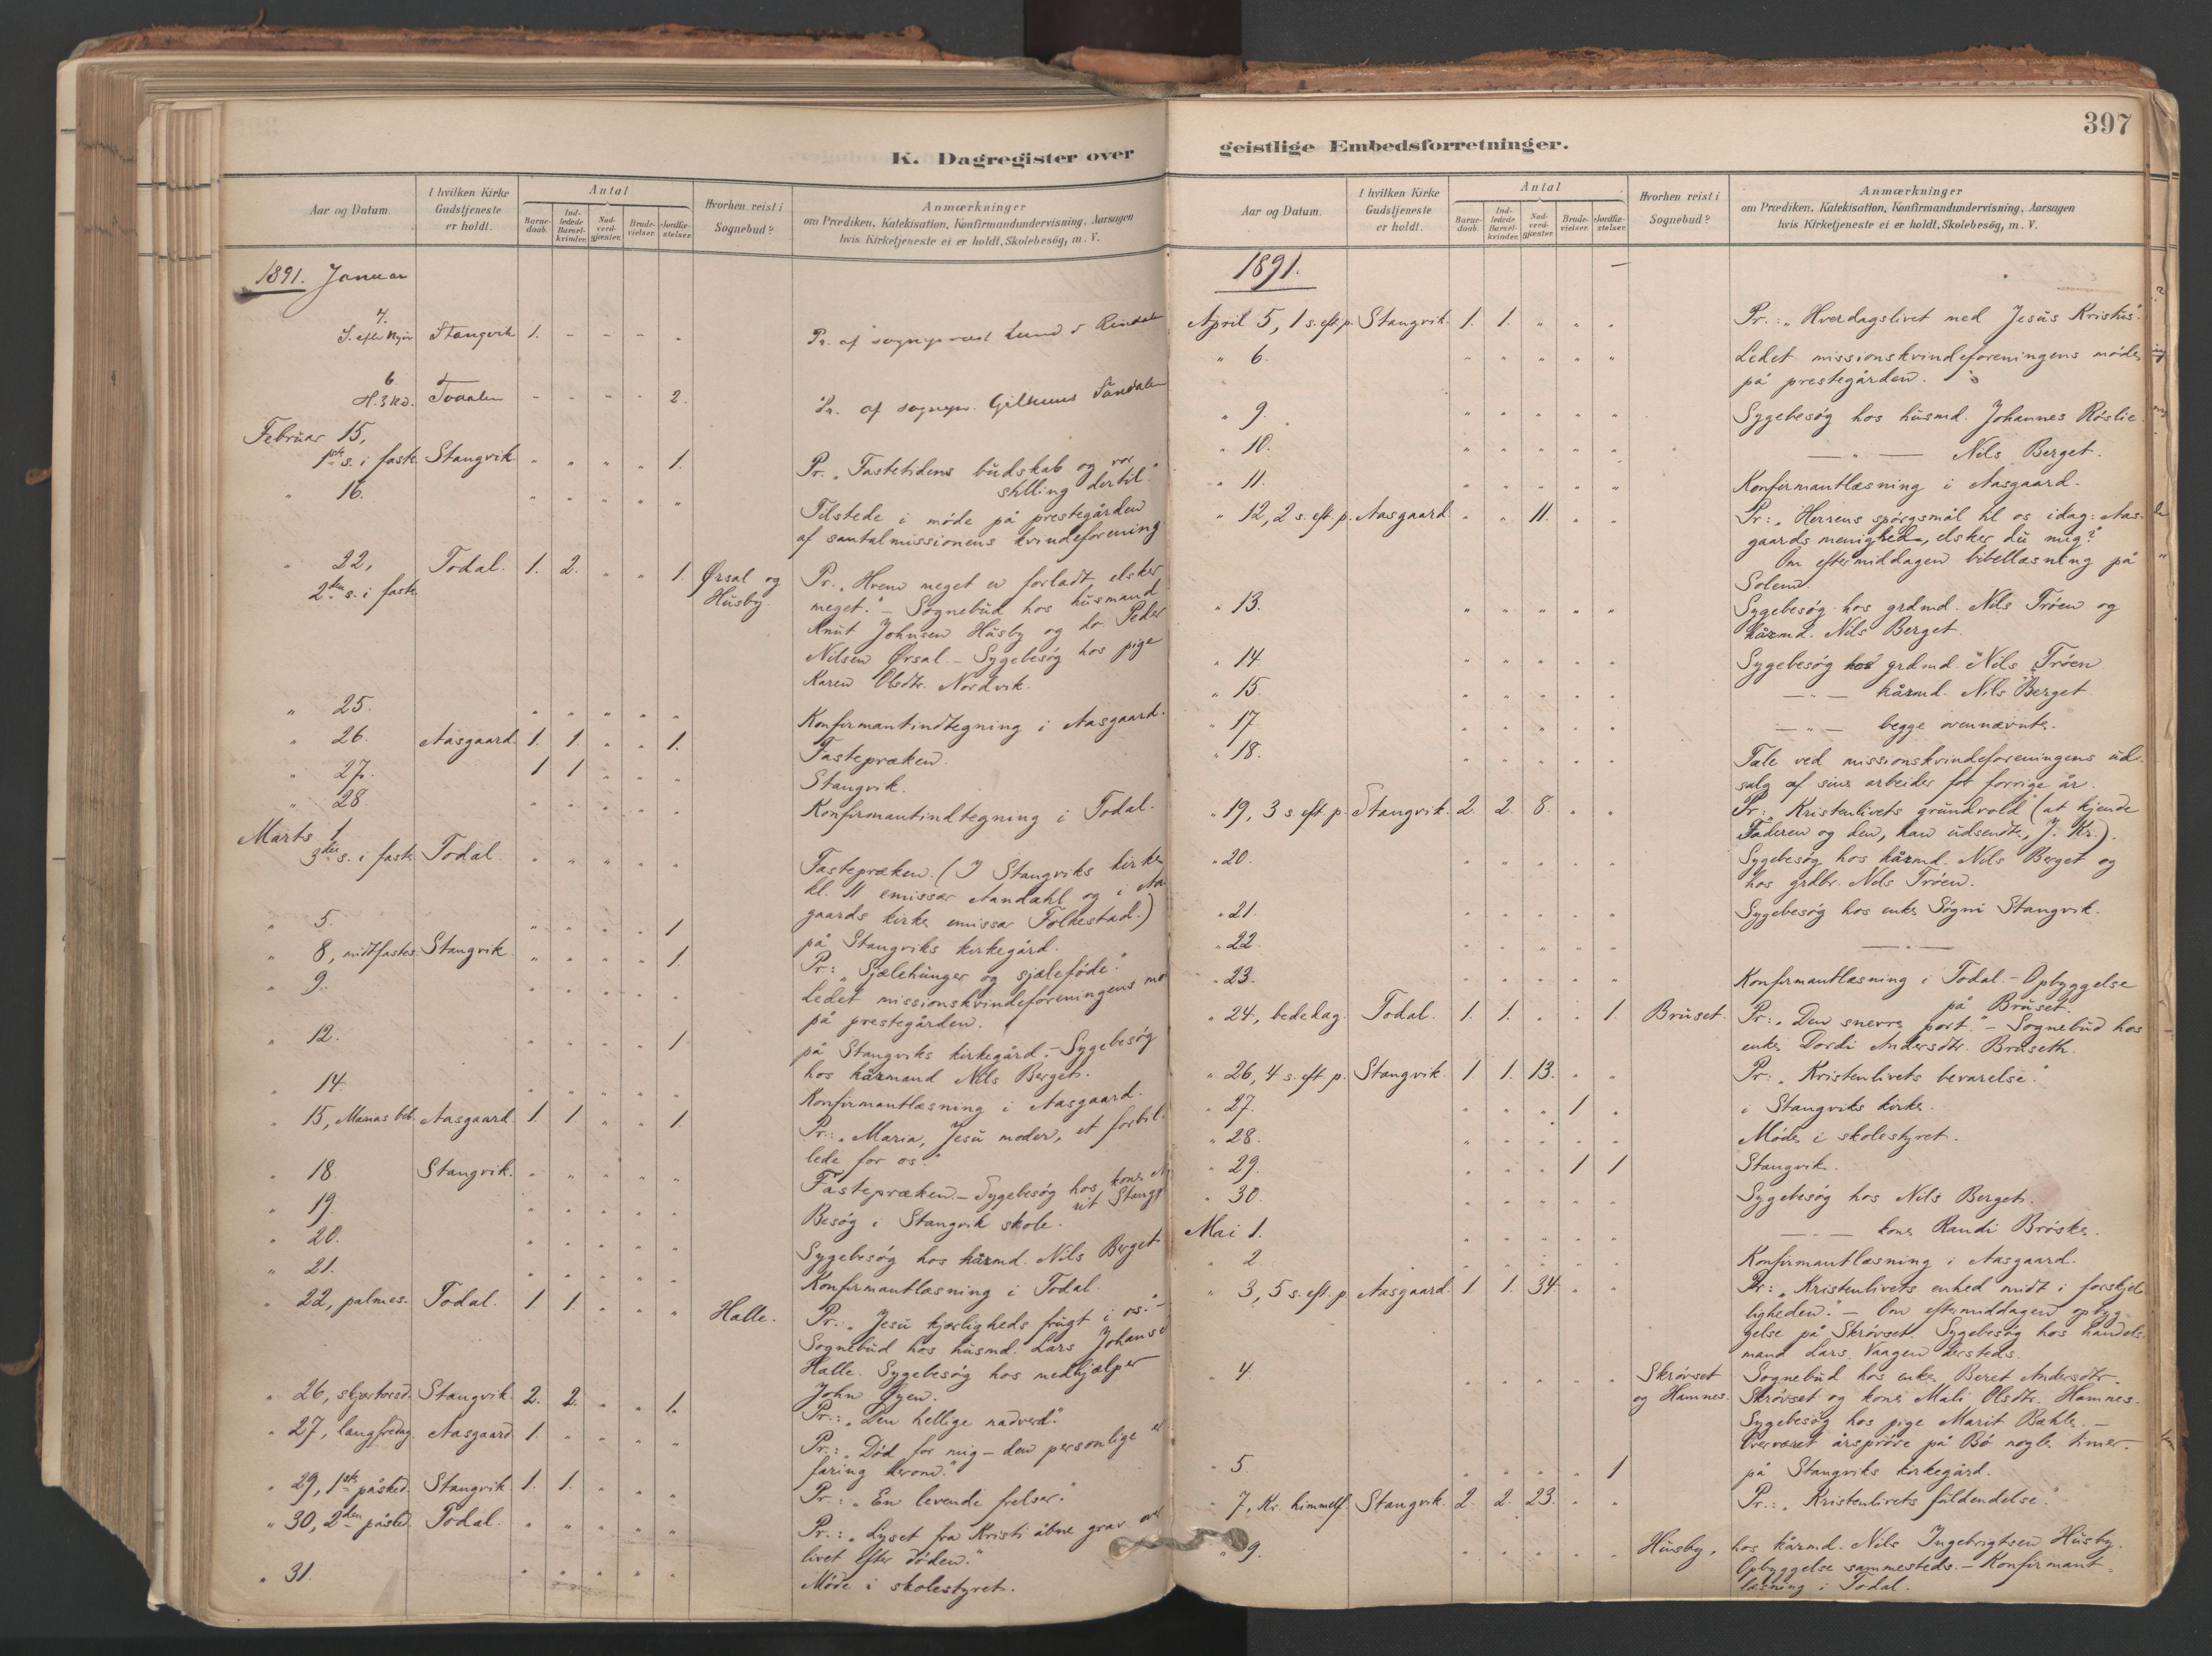 397
K. Dagregister over
Aar og Datum. I hvilken Kirke Gudstjeneste er holdt. Antal Barnedaab. Indledede Barselkvinder. Nadverdgjæster. Brudevielser. Jordfæstelser. Hvorhen reist i Sognebud? Anmærkninger om Prædiken, Katekisation, Konfirmandundervisning, Aarsagen hvis Kirketjeneste ei er holdt, Skolebesög, m. V.
1891. Januar
4.
S. efter Nyår Stangvik 1. - - - - Pr. af sogneprest Lund i Rindalen
6
H. 3 K. D. Todalen - - - - 2. Pr. af sognepr.
Februar 15,
1ste s. i faste Stangvik " " " " 1. Pr. „Fastetidens budskab og vor
stilling dertil."
" 16. " " " " " Tilstede i møde på prestegården
af santalmissionens kvindeforening.
" 22, Todal. 1. 2. " " 1. Ørsal og Pr. „Hvem meget er forladt, elsker
2den s. i faste Husby. meget." – Sognebud hos husmand
Knut Johnsen Husby og do. Peder
Nilsen Ørsal. – Sygebesøg hos pige
Karen Olsdtr. Nordvik.
" 25. " " " " " Konfirmantindtegning i Aasgaard.
" 26. Aasgaard. 1. 1. " " 1. Fastepræken.
" 27. 1 1 " " " Stangvik.
" 28. " " " " " Konfirmantindtegning i Todal.
Marts 1
3die s. i faste Todal. " " " " " Fastepræken. (I Stangviks kirke
kl. 11 emissær Aandahl og i Aas
gaards kirke emissær Folkestad.)
" 5. " " " " 1 på Stangviks kirkegård.
" 8, midtfastes. Stangvik " " " " 1. Pr: „Sjælehunger og sjæleføde."
" 9. " " " " " Ledet missionskvindeforeningens mø
på prestegården.
" 12. " " " " 1 på Stangviks kirkegård. – Sygebesøg
hos kårmand Nils Berget.
" 14. " " " " " Konfirmantlæsning i Aasgaard.
" 15, Marias beb. Aasgaard. 1. 1. " " 1. Pr: „Maria, Jesu moder, et forbil-
lede for os."
" 18. Stangvik. " " " " " Fastepræken. – Sygebesøg hos kone
" 19. " " " " " Besøg i Stangvik skole.
" 20. " " " " " Sygebesøg hos kårmd. Nils Berget
" 21. " " " " " Konfirmantlæsning i Todal.
" 22, palmes. Todal. 1. 1. " " " Halle. Pr.: „Jesu kjærligheds frugt i os." –
Sognebud hos husmd. Lars Johansen
Halle. Sygebesøg hos medhjælper
John Øyen.
" 26, skjærtorsd. Stangvik. 2. 2. " " 1. Pr.: „Den hellige nadverd."
" 27, langfredag. Aasgaard. 1. " " " " Pr.: „Død for mig – den personlige er-
faring derom."
" 29, 1ste påsked. Stangvik 1. 1. " " " Pr.: „En levende frelser."
" 30, 2den påsked. Todal. " " " " " Pr.: „Lyset fra Kristi åbne grav over
livet efter døden."
" 31. " " " " " Møde i skolestyret.
geistlige Embedsforretninger.
Aar og Datum. I hvilken Kirke Gudstjeneste er holdt. Antal Barnedaab. Indledede Barselkvinder. Nadverdgjæster. Brudevielser. Jordfæstelser. Hvorhen reist i Sognebud? Anmærkninger om Prædiken, Katekisation, Konfirmandundervisning, Aarsagen hvis Kirketjeneste ei er holdt, Skolebesög, m. V.
1891.
April 5, 1 s. eft. p. Stangvik. 1. 1. " " " Pr.: „Hverdagslivet med Jesus Kristus."
" 6. " " " " " Ledet missionskvindeforeningens møde
på prestegården.
" 9. " " " " " Sygebesøg hos husmd. Johannes Røslie
" 10. " " " " " — " — Nils Berget.
" 11. " " " " " Konfirmantlæsning i Aasgaard.
" 12, 2 s. eft. p. Aasgaard. " " 11. " " Pr: „Herrens spørgsmål til os idag: Aas-
gaards menighed, elsker du mig?"
Om eftermiddagen bibellæsning på
Solem.
" 13. " " " " " Sygebesøg hos grdmd. Nils Trøen og
kårmd. Nils Berget.
" 14. " " " " " Sygebesøg hos grdmd. Nils Trøen
" 15. " " " " " — " — kårmd. Nils Berget
" 17. " " " " " — " — begge ovennævnte.
" 18. " " " " " Tale ved missionskvindeforeningens ud-
salg af sine arbeider for forrige år.
" 19, 3 s. eft. p. Stangvik. 2. 2. 8. " " Pr.: „Kristenlivets grundvold" (at kjende
Faderen og den, han udsendte, J. Kr.).
" 20. " " " " " Sygebesøg hos kårmd. Nils Berget og
hos grdbr. Nils Trøen.
" 21. " " " " " Sygebesøg hos enke Søgni Stangvik.
" 22. " " " " " — " —
" 23. " " " " " Konfirmantlæsning i Todal. – Opbyggelse
på Bruset.
" 24, bededag. Todal. 1. 1. " " 1. Bruset. Pr: „Den snevre port." – Sognebud hos
enke Dordi Andersdtr. Bruseth.
" 26, 4 s. eft. p. Stangvik. 1 1. 13. " " Pr: „Kristenlivets bevarelse."
" 27. " " " 1 " i Stangviks kirke.
" 28. " " " " " Møde i skolestyret.
" 29. " " " 1 1 Stangvik.
" 30. " " " " " Sygebesøg hos Nils Berget.
Mai 1. " " " " " — " — kone Randi Brøske.
" 2. " " " " " Konfirmantlæsning i Aasgaard.
" 3, 5 s. eft. p. Aasgaard. 1 1. 34. " " Pr: „Kristenlivets enhed midt i forskjel-
ligheden." – Om eftermiddagen opbyg-
gelse på Skrøvset. Sygebesøg hos handels-
mand Lars Vaagen dersteds.
" 4. " " " " " Skrøvset Sognebud hos enke Beret Andersdtr.
og Hamnes. Skrøvset og kone Mali Olsdtr. Hamnes.
Sygebesøg hos pige Marit Bæhle. –
Overværet årsprøve på Bø nogle timer.
" 5. " " " " 1 på Stangviks kirkegård.
" 7, Kr. himmelf. Stangvik. 2. 2. 23. " " Pr.: „Kristenlivets fuldendelse."
" 9. " " " " " Husby, hos kårmd. Nils Ingebrigtsen Husby.
Opbyggelse sammesteds. – Konfirmant-
læsning i Todal.